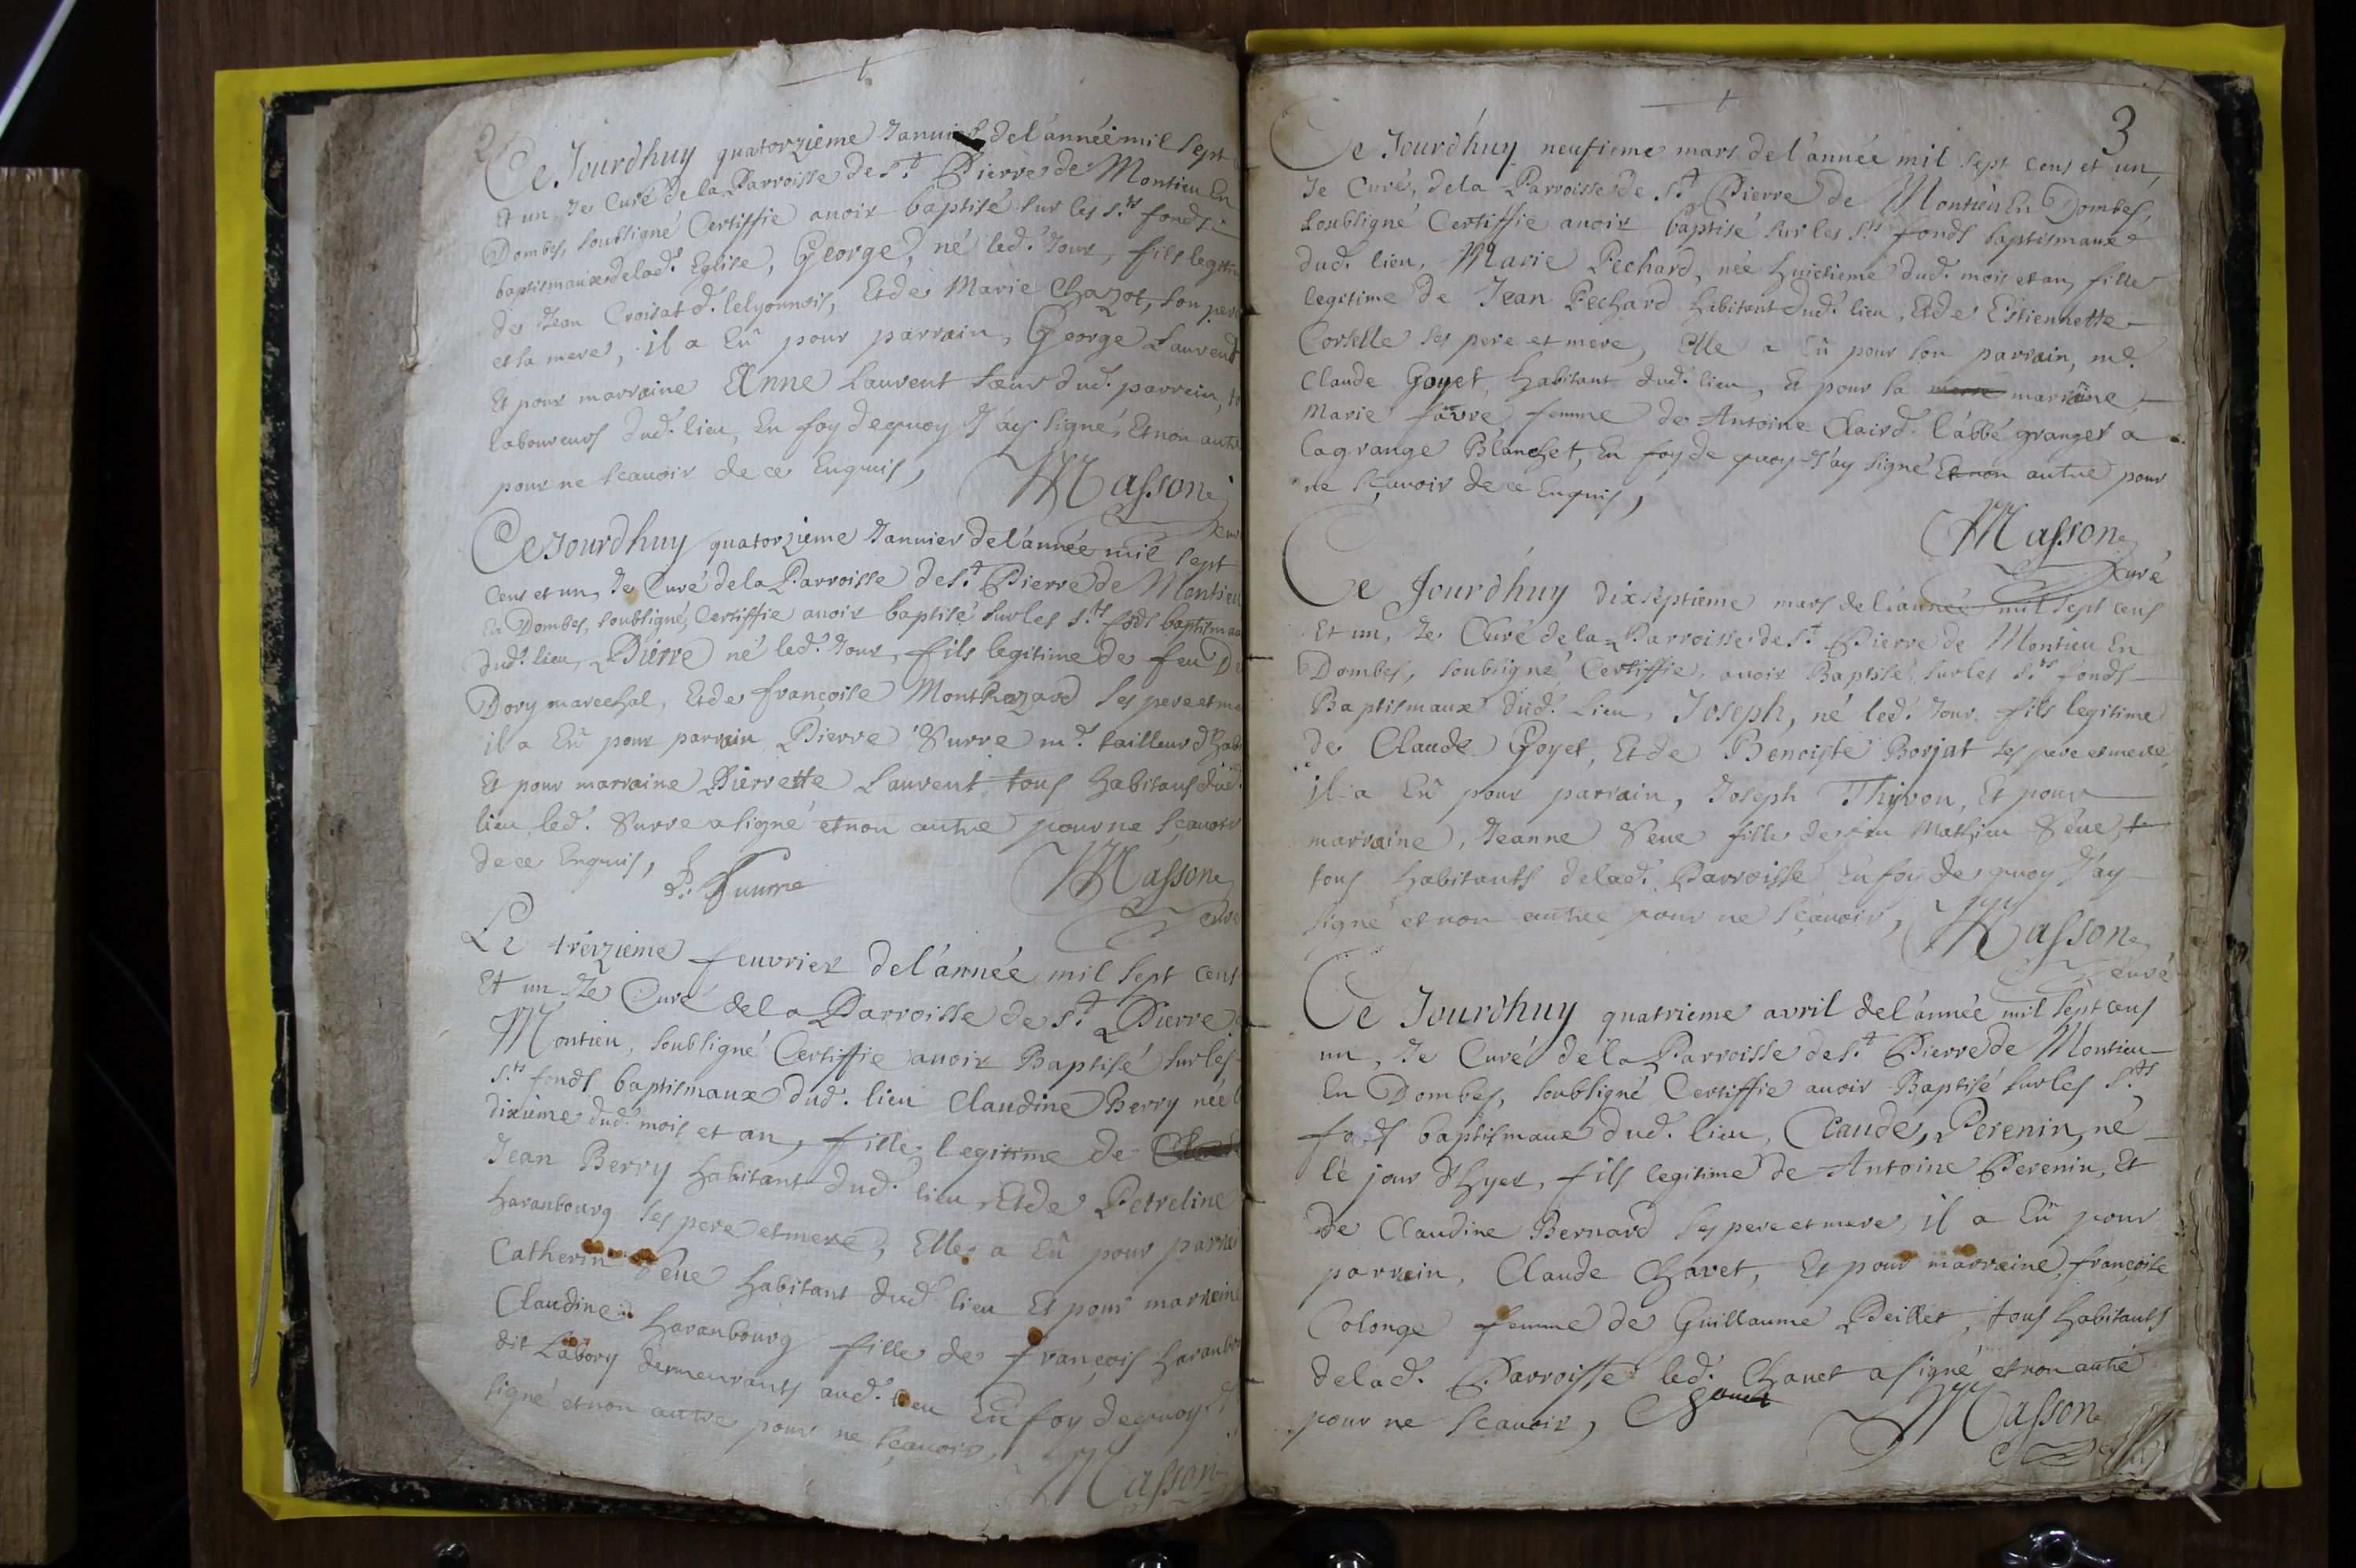 2
Ce Jourdhuy quatorzieme Januier del'année mil sept
et un Je Curé dela Parroisse de S.t Pierre de Montieu En
Dombes, soubsigné Certiffie auoir baptisé sur les S.ts fonds
baptismaux delad.e Eglise, George, né led.t Jour, fils legitim
de Jean Croisat d.t lelyonnois, Et de Marie Chazot, son pere
et sa mere, il a Eû pour parrain, George Laurent
Et pour marraine Anne Laurent soeur dud.t parrein,
laboureurs dud.t lieu, En foy dequoy J'ay signé, Et non autre
pour ne scauoir de ce Enquis,
Masson
curé
Ce Jourdhuy quatorzieme Januier del'année mil sept
cens et un, Je Curé dela Parroisse de S.t Pierre de Montieu
En Dombes, soubsigné, Certiffie auoir baptisé sur les S.ts fods baptismau
dud.t lieu, Pierre né led.t Jour, fils legitime de feu
Dory marechal, Et de françoise Monthazard ses pere et me
il a Eû pour parrain Pierre Surre m.e tailleur d'hab
Et pour marraine Pierrette Laurent, tous habitans dud.
lieu, led.t Surre a signé et non autre pour ne sçauoir
de ce Enquis,
P. Suurre
Masson
curé
Le treizieme feuvrier del'année mil sept cens
Et un Je Curé dela Parroisse de S.t Pierre
Montieu, soubsigné Certiffie auoir Baptisé sur les
S.ts fonds baptismaux dud.t lieu Claudine Berry née l
dixieme dud.t mois et an, fille legitime de
Jean Berry habitant dud.t lieu, Et de Petreline
haranbourg ses pere et mere, Elle a Eû pour parrei
Catherin Seue habitant dud.t lieu Et pour marreine
Claudine haranbourg fille de françois haranbo
dit Labory demeurants aud.t lieu En foy dequoy J
signé et non autre pour ne sçauoir,
Masson
3
Ce Jourdhuy neufieme mars del'année mil sept cens et un,
Je Curé, dela Parroisse de S.t Pierre de Montieu En Dombes,
soubsigné Certiffie auoir baptisé sur les S.ts fonds baptismaux
dud.t lieu, Marie Pechard, née huictieme dud.t mois et an, fille
legitime de Jean Pechard habitant dud.t lieu, Et de Estiennette
Corselle ses pere et mere, Elle a Eû pour son parrain, m.e
Claude Goyet, habitant dud.t lieu, Et pour sa marraine,
Marie favre femme de Antoine Clair d.t l'abbé granger a
lagrange Blanchet, En foy de quoy J'ay signé Et non autre pour
ne sçauoir de ce Enquis,
Masson
curé
Ce Jourdhuy dixseptieme mars del'année mil sept cens
Et un, Je Curé dela Parroisse de S.t Pierre de Montieu En
Dombes, soubsigné Certiffie, auoir Baptisé sur les S.ts fonds
Baptismaux dud.t Lieu, Joseph, né led.t Jour, fils legitime
de Claude Goyet, Et de Benoiste Borjat ses pere et mere,
il a Eû pour parrain, Joseph Thivon, Et pour
marraine, Jeanne Seue fille de feu Mathieu Seue,
tous habitants delad.e Parroisse En foy de quoy J'ay
signé et non autre pour ne sçauoir,
Masson
curé
Ce Jourdhuy quatrieme avril del'année mil sept cens
un, Je Curé dela Parroisse de S.t Pierre de Montieu
En Dombes, soubsigné Certiffie auoir Baptisé sur les S.ts
fods baptismaux dud.t lieu, Claude, Perenin, né
le jour d'hyer, fils legitime de Antoine Perenin, Et
de Claudine Bernard ses pere et mere, il a Eû pour
parrein, Claude Chavet, Et pour marraine, françoise
Colonge femme de Guillaume Peillet, tous habitants
delad.e Parroisse led.t Chauet a signé et non autre
pour ne sçauoir,
Chauet
Masson